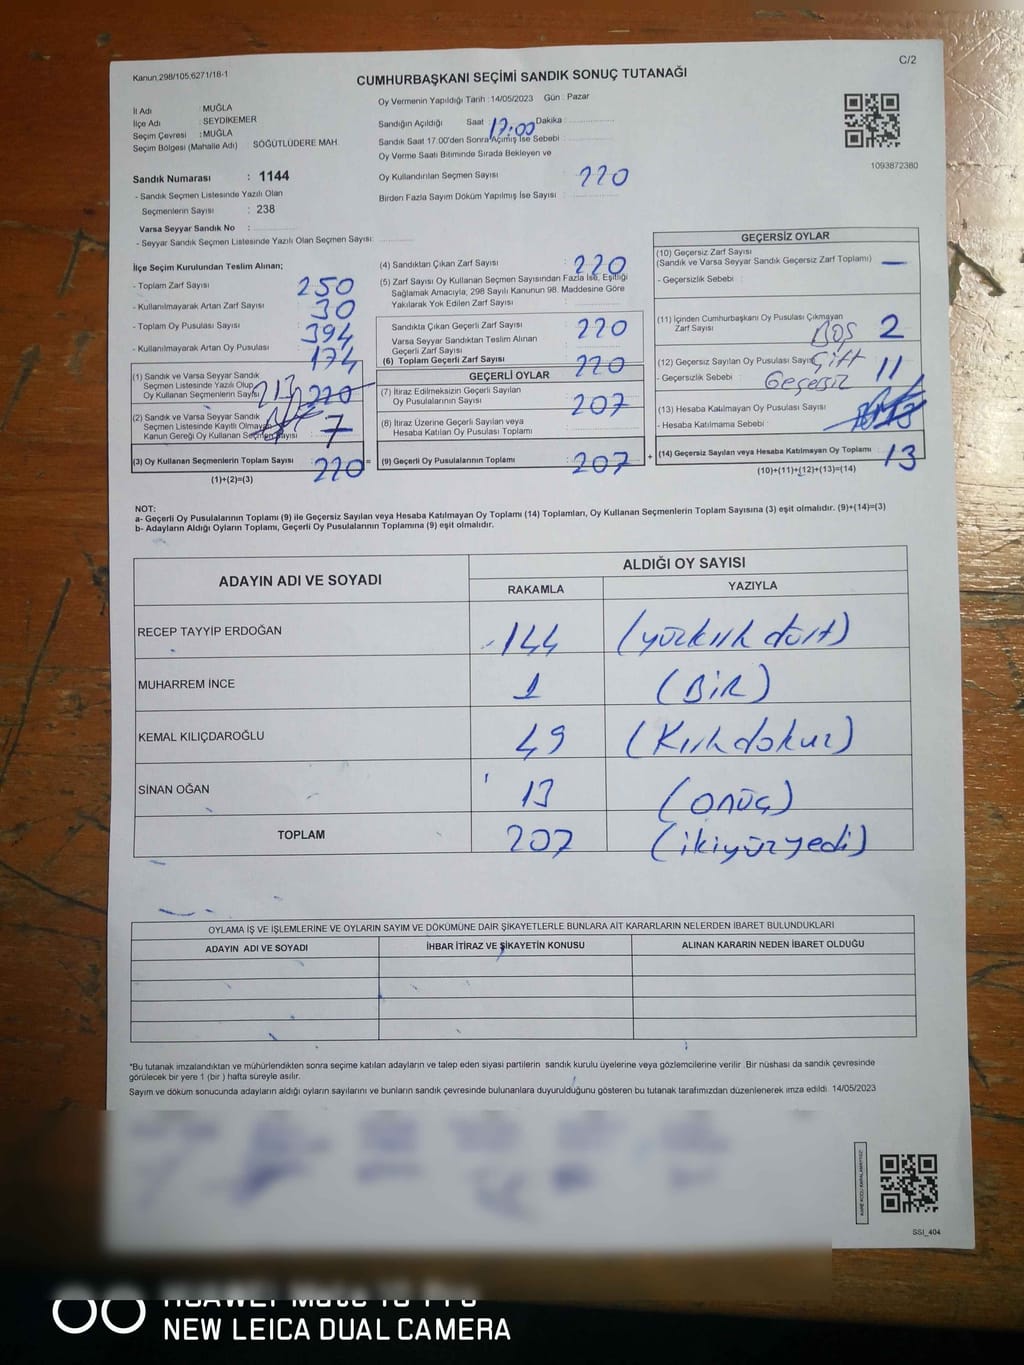 Kanun.298/105,6271/18-1
C/2
CUMHURBAŞKANI SEÇİMİ SANDIK SONUÇ TUTANAĞI
Oy Vermenin Yapıldığı Tarih :14/05/2023 Gün : Pazar
İl Adı : MUĞLA
İlçe Adı : SEYDİKEMER
Seçim Çevresi : MUĞLA
Seçim Bölgesi (Mahalle Adı) : SÖĞÜTLÜDERE MAH.
Sandığın Açıldığı Saat 17:00 Dakika
Sandık Saat 17:00'den Sonra Açımış İse Sebebi
Oy Verme Saati Bitiminde Sırada Bekleyen ve
Oy Kullandırılan Seçmen Sayısı : 220
Birden Fazla Sayım Döküm Yapılmış İse Sayısı :
1093872380
Sandık Numarası : 1144
- Sandık Seçmen Listesinde Yazılı Olan
Seçmenlerin Sayısı : 238
Varsa Seyyar Sandık No :
- Seyyar Sandık Seçmen Listesinde Yazılı Olan Seçmen Sayısı:
İlçe Seçim Kurulundan Teslim Alınan;
- Toplam Zarf Sayısı : 250
- Kullanılmayarak Artan Zarf Sayısı : 30
- Toplam Oy Pusulası Sayısı : 394
- Kullanılmayarak Artan Oy Pusulası : 174
(1) Sandık ve Varsa Seyyar Sandık
Seçmen Listesinde Yazılı Olup
Oy Kullanan Seçmenlerin Sayısı 213 220
(2) Sandık ve Varsa Seyyar Sandık
Seçmen Listesinde Kayıtlı Olmayan
Kanun Gereği Oy Kullanan Seçmen Sayısı 7
(3) Oy Kullanan Seçmenlerin Toplam Sayısı 220
(1)+(2)=(3)
(4) Sandıktan Çıkan Zarf Sayısı : 220
(5) Zarf Sayısı Oy Kullanan Seçmen Sayısından Fazla İse, Eşitliği
Sağlamak Amacıyla, 298 Sayılı Kanunun 98. Maddesine Göre
Yakılarak Yok Edilen Zarf Sayısı :
Sandıkta Çıkan Geçerli Zarf Sayısı : 220
Varsa Seyyar Sandıktan Teslim Alınan
Geçerli Zarf Sayısı
(6) Toplam Geçerli Zarf Sayısı : 220
GEÇERLİ OYLAR
(7) İtiraz Edilmeksizin Geçerli Sayılan
Oy Pusulalarının Sayısı : 207
(8) İtiraz Üzerine Geçerli Sayılan veya
Hesaba Katılan Oy Pusulası Toplamı :
= (9) Geçerli Oy Pusulalarının Toplamı : 207
GEÇERSİZ OYLAR
(10) Geçersiz Zarf Sayısı
(Sandık ve Varsa Seyyar Sandık Geçersiz Zarf Toplamı) : —
- Geçersizlik Sebebi :
(11) İçinden Cumhurbaşkanı Oy Pusulası Çıkmayan
Zarf Sayısı : BOŞ 2
(12) Geçersiz Sayılan Oy Pusulası Sayısı Çift 11
- Geçersizlik Sebebi : Geçersiz
(13) Hesaba Katılmayan Oy Pusulası Sayısı :
- Hesaba Katılmama Sebebi :
+ (14) Geçersiz Sayılan veya Hesaba Katılmayan Oy Toplamı : 13
(10)+(11)+(12)+(13)=(14)
NOT:
a- Geçerli Oy Pusulalarının Toplamı (9) ile Geçersiz Sayılan veya Hesaba Katılmayan Oy Toplamı (14) Toplamları, Oy Kullanan Seçmenlerin Toplam Sayısına (3) eşit olmalıdır. (9)+(14)=(3)
b- Adayların Aldığı Oyların Toplamı, Geçerli Oy Pusulalarının Toplamına (9) eşit olmalıdır.
ADAYIN ADI VE SOYADI
ALDIĞI OY SAYISI
RAKAMLA YAZIYLA
RECEP TAYYİP ERDOĞAN 144 (yüzkırk dört)
MUHARREM İNCE 1 (BİR)
KEMAL KILIÇDAROĞLU 49 (Kırkdokuz)
SİNAN OĞAN 13 (onüç)
TOPLAM 207 (ikiyüzyedi)
OYLAMA İŞ VE İŞLEMLERİNE VE OYLARIN SAYIM VE DÖKÜMÜNE DAİR ŞİKAYETLERLE BUNLARA AİT KARARLARIN NELERDEN İBARET BULUNDUKLARI
ADAYIN ADI VE SOYADI İHBAR İTİRAZ VE ŞİKAYETİN KONUSU ALINAN KARARIN NEDEN İBARET OLDUĞU
*Bu tutanak imzalandıktan ve mühürlendikten sonra seçime katılan adayların ve talep eden siyasi partilerin sandık kurulu üyelerine veya gözlemcilerine verilir .Bir nüshası da sandık çevresinde
görülecek bir yere 1 (bir ) hafta süreyle asılır.
Sayım ve döküm sonucunda adayların aldığı oyların sayılarını ve bunların sandık çevresinde bulunanlara duyurulduğunu gösteren bu tutanak tarafımızdan düzenlenerek imza edildi. 14/05/2023
SSI_404
NEW LEICA DUAL CAMERA